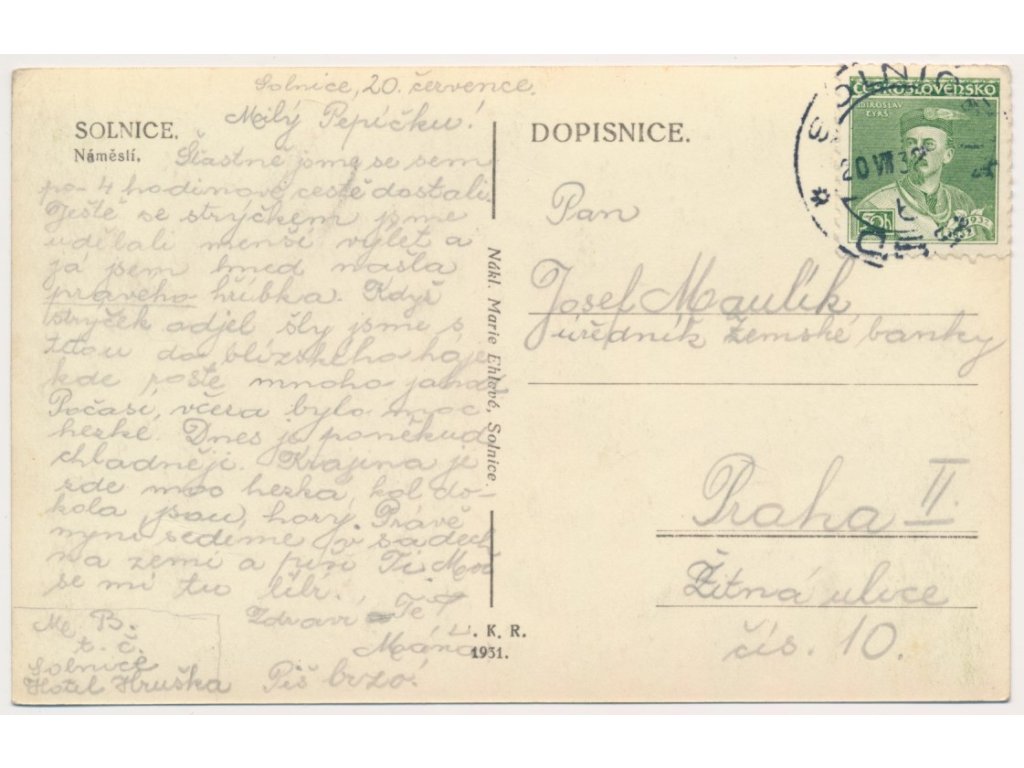 Solnice, 20. července.
Milý Pepíčku!
SOLNICE.
Náměstí.
Šťastně jsme se sem
po 4 hodinové cestě dostali.
Ještě se strýčkem jsme
udělali menší výlet a
já jsem hned našla
pravého hříbka. Když
strýček odjel šly jsme s
tetou do blízského háje
kde roste mnoho jahod
Počasí, včera bylo moc
hezké. Dnes je poněkud
chladněji. Krajina je
zde moc hezká, kol do-
kola jsou hory. Právě
nyní sedíme v sadech
na zemi a píši Ti. Moc
se mi tu líbí.
Zdraví Tě
Máňa
Piš brzo.
M. B.
t. č.
Solnice
Hotel Hruška
Nákl. Marie Ehlové, Solnice.
L. K. R.
1931.
DOPISNICE.
ČESKOSLOVENSKO
MIROSLAV
TYRŠ
50h
1932
SOLNICE
20 VII 32
Pan
Josef Maulík
úředník Zemské banky
Praha II.
Žitná ulice
čís. 10.